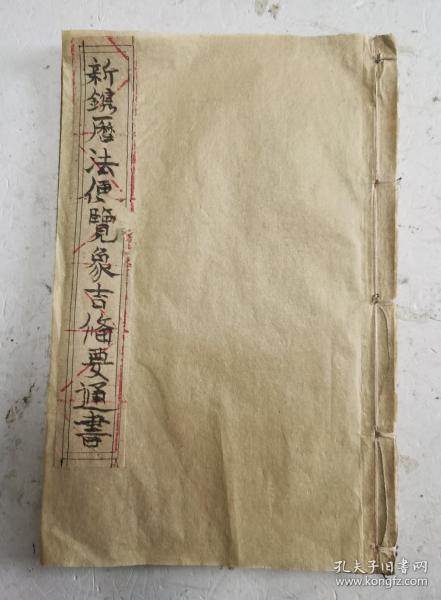 新鐫厯法便覽象吉俻要通書
孔夫子旧书网
www.kongfz.com